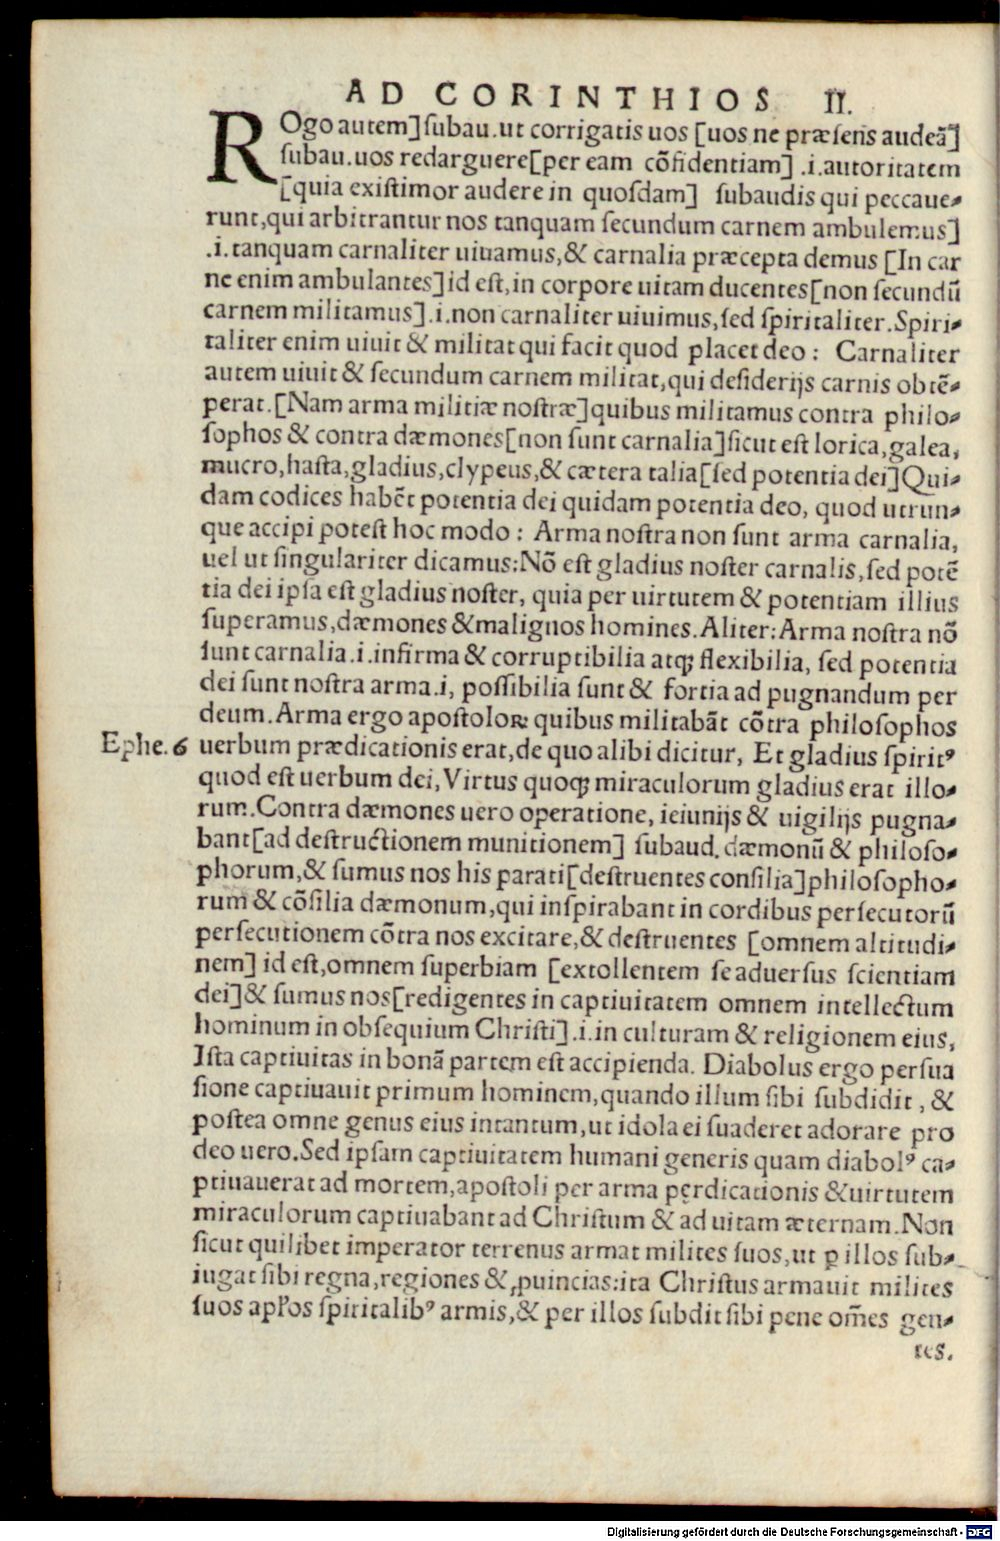 AD CORINTHIOS II.
ROgo autem]ſubau.ut corrigatis uos [uos ne præſens audeā]
ſubau.uos redarguere[per eam cōfidentiam] .i.autoritatem
[quia exiſtimor audere in quoſdam] ſubaudis qui peccaue-
runt,qui arbitrantur nos tanquam ſecundum carnem ambulemus]
.i.tanquam carnaliter uiuamus,& carnalia præcepta demus [In car
ne enim ambulantes]id eſt,in corpore uitam ducentes[non ſecundū
carnem militamus].i.non carnaliter uiuimus,ſed ſpiritaliter.Spiri-
taliter enim uiuit & militat qui facit quod placet deo: Carnaliter
autem uiuit & ſecundum carnem militat,qui deſiderijs carnis obtē-
perat.[Nam arma militiæ noſtræ]quibus militamus contra philo-
ſophos & contra dæmones[non ſunt carnalia]ſicut eſt lorica,galea,
mucro,haſta,gladius,clypeus,& cætera talia[ſed potentia dei]Qui-
dam codices habēt potentia dei quidam potentia deo, quod utrun-
que accipi poteſt hoc modo: Arma noſtra non ſunt arma carnalia,
uel ut ſingulariter dicamus:Nō eſt gladius noſter carnalis,ſed potē
tia dei ipſa eſt gladius noſter, quia per uirtutem & potentiam illius
ſuperamus,dæmones &malignos homines.Aliter:Arma noſtra nō
ſunt carnalia.i.infirma & corruptibilia atqꝫ flexibilia, ſed potentia
dei ſunt noſtra arma.i, poſſibilia ſunt & fortia ad pugnandum per
deum.Arma ergo apoſtoloꝝ quibus militabāt cōtra philoſophos
Ephe.6 uerbum prædicationis erat,de quo alibi dicitur, Et gladius ſpiritꝰ
quod eſt uerbum dei,Virtus quoqꝫ miraculorum gladius erat illo-
rum.Contra dæmones uero operatione, ieiunijs & uigilijs pugna-
bant[ad deſtructionem munitionem] ſubaud.dæmonū & philoſo-
phorum,& ſumus nos his parati[deſtruentes conſilia]philoſopho-
rum & cōſilia dæmonum,qui inſpirabant in cordibus perſecutorū
perſecutionem cōtra nos excitare,& deſtruentes [omnem altitudi-
nem] id eſt,omnem ſuperbiam [extollentem ſe aduerſus ſcientiam
dei]& ſumus nos[redigentes in captiuitatem omnem intellectum
hominum in obſequium Chriſti].i.in culturam & religionem eius,
Iſta captiuitas in bonā partem eſt accipienda. Diabolus ergo perſua
ſione captiuauit primum hominem,quando illum ſibi ſubdidit, &
poſtea omne genus eius intantum,ut idola ei ſuaderet adorare pro
deo uero.Sed ipſam captiuitatem humani generis quam diabolꝰ ca-
ptiuauerat ad mortem,apoſtoli per arma prdicationis &uirtutem
miraculorum captiuabant ad Chriſtum & ad uitam æternam.Non
ſicut quilibet imperator terrenus armat milites ſuos,ut ꝑ illos ſub-
iugat ſibi regna,regiones &,ꝓuincias:ita Chriſtus armauit milites
ſuos apl'os ſpiritalibꝰ armis,& per illos ſubdit ſibi pene om̄es gen-
tes.
Digitalisierung gefördert durch die Deutsche Forschungsgemeinschaft - DFG